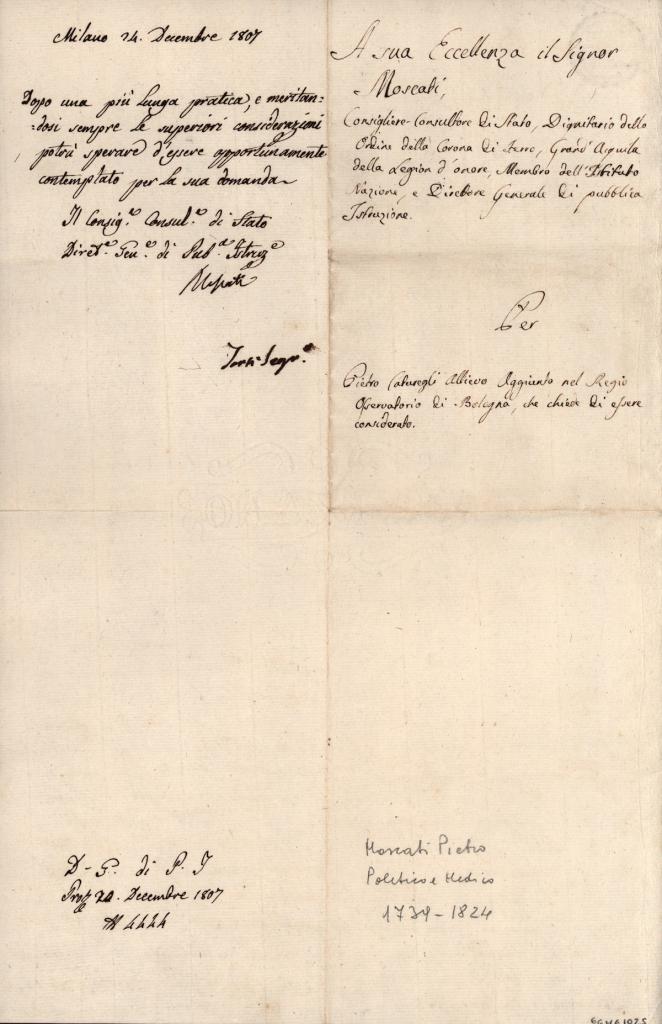 Milano 24. Decembre 1807
Dopo una più lunga pratica, e meritan=
=dosi sempre le superiori considerazioni
potrà sperare d'essere opportunamente
contemplato per la sua domanda
Il Consig.e Consul.e di Stato
Diret.e Gen.e di Pub.a Istruz.e
Moscati
Segr.o
D. G. di P. I
Prot. 24. Decembre 1807
N 4444
A sua Eccellenza il Signor
Moscati,
Consigliere-Consultore di Stato, Dignitario dello
Ordine della Corona di ferro, Grand'Aquila
della Legion d'onore, Membro dell'Istituto
Nazione, e Direttore Generale di pubblica
Istruzione.
Per
Pietro Caturegli Allievo Aggiunto nel Regio
Osservatorio di Bologna, che chiede di essere
considerato.
Moscati Pietro
Politico e Medico
1739-1824